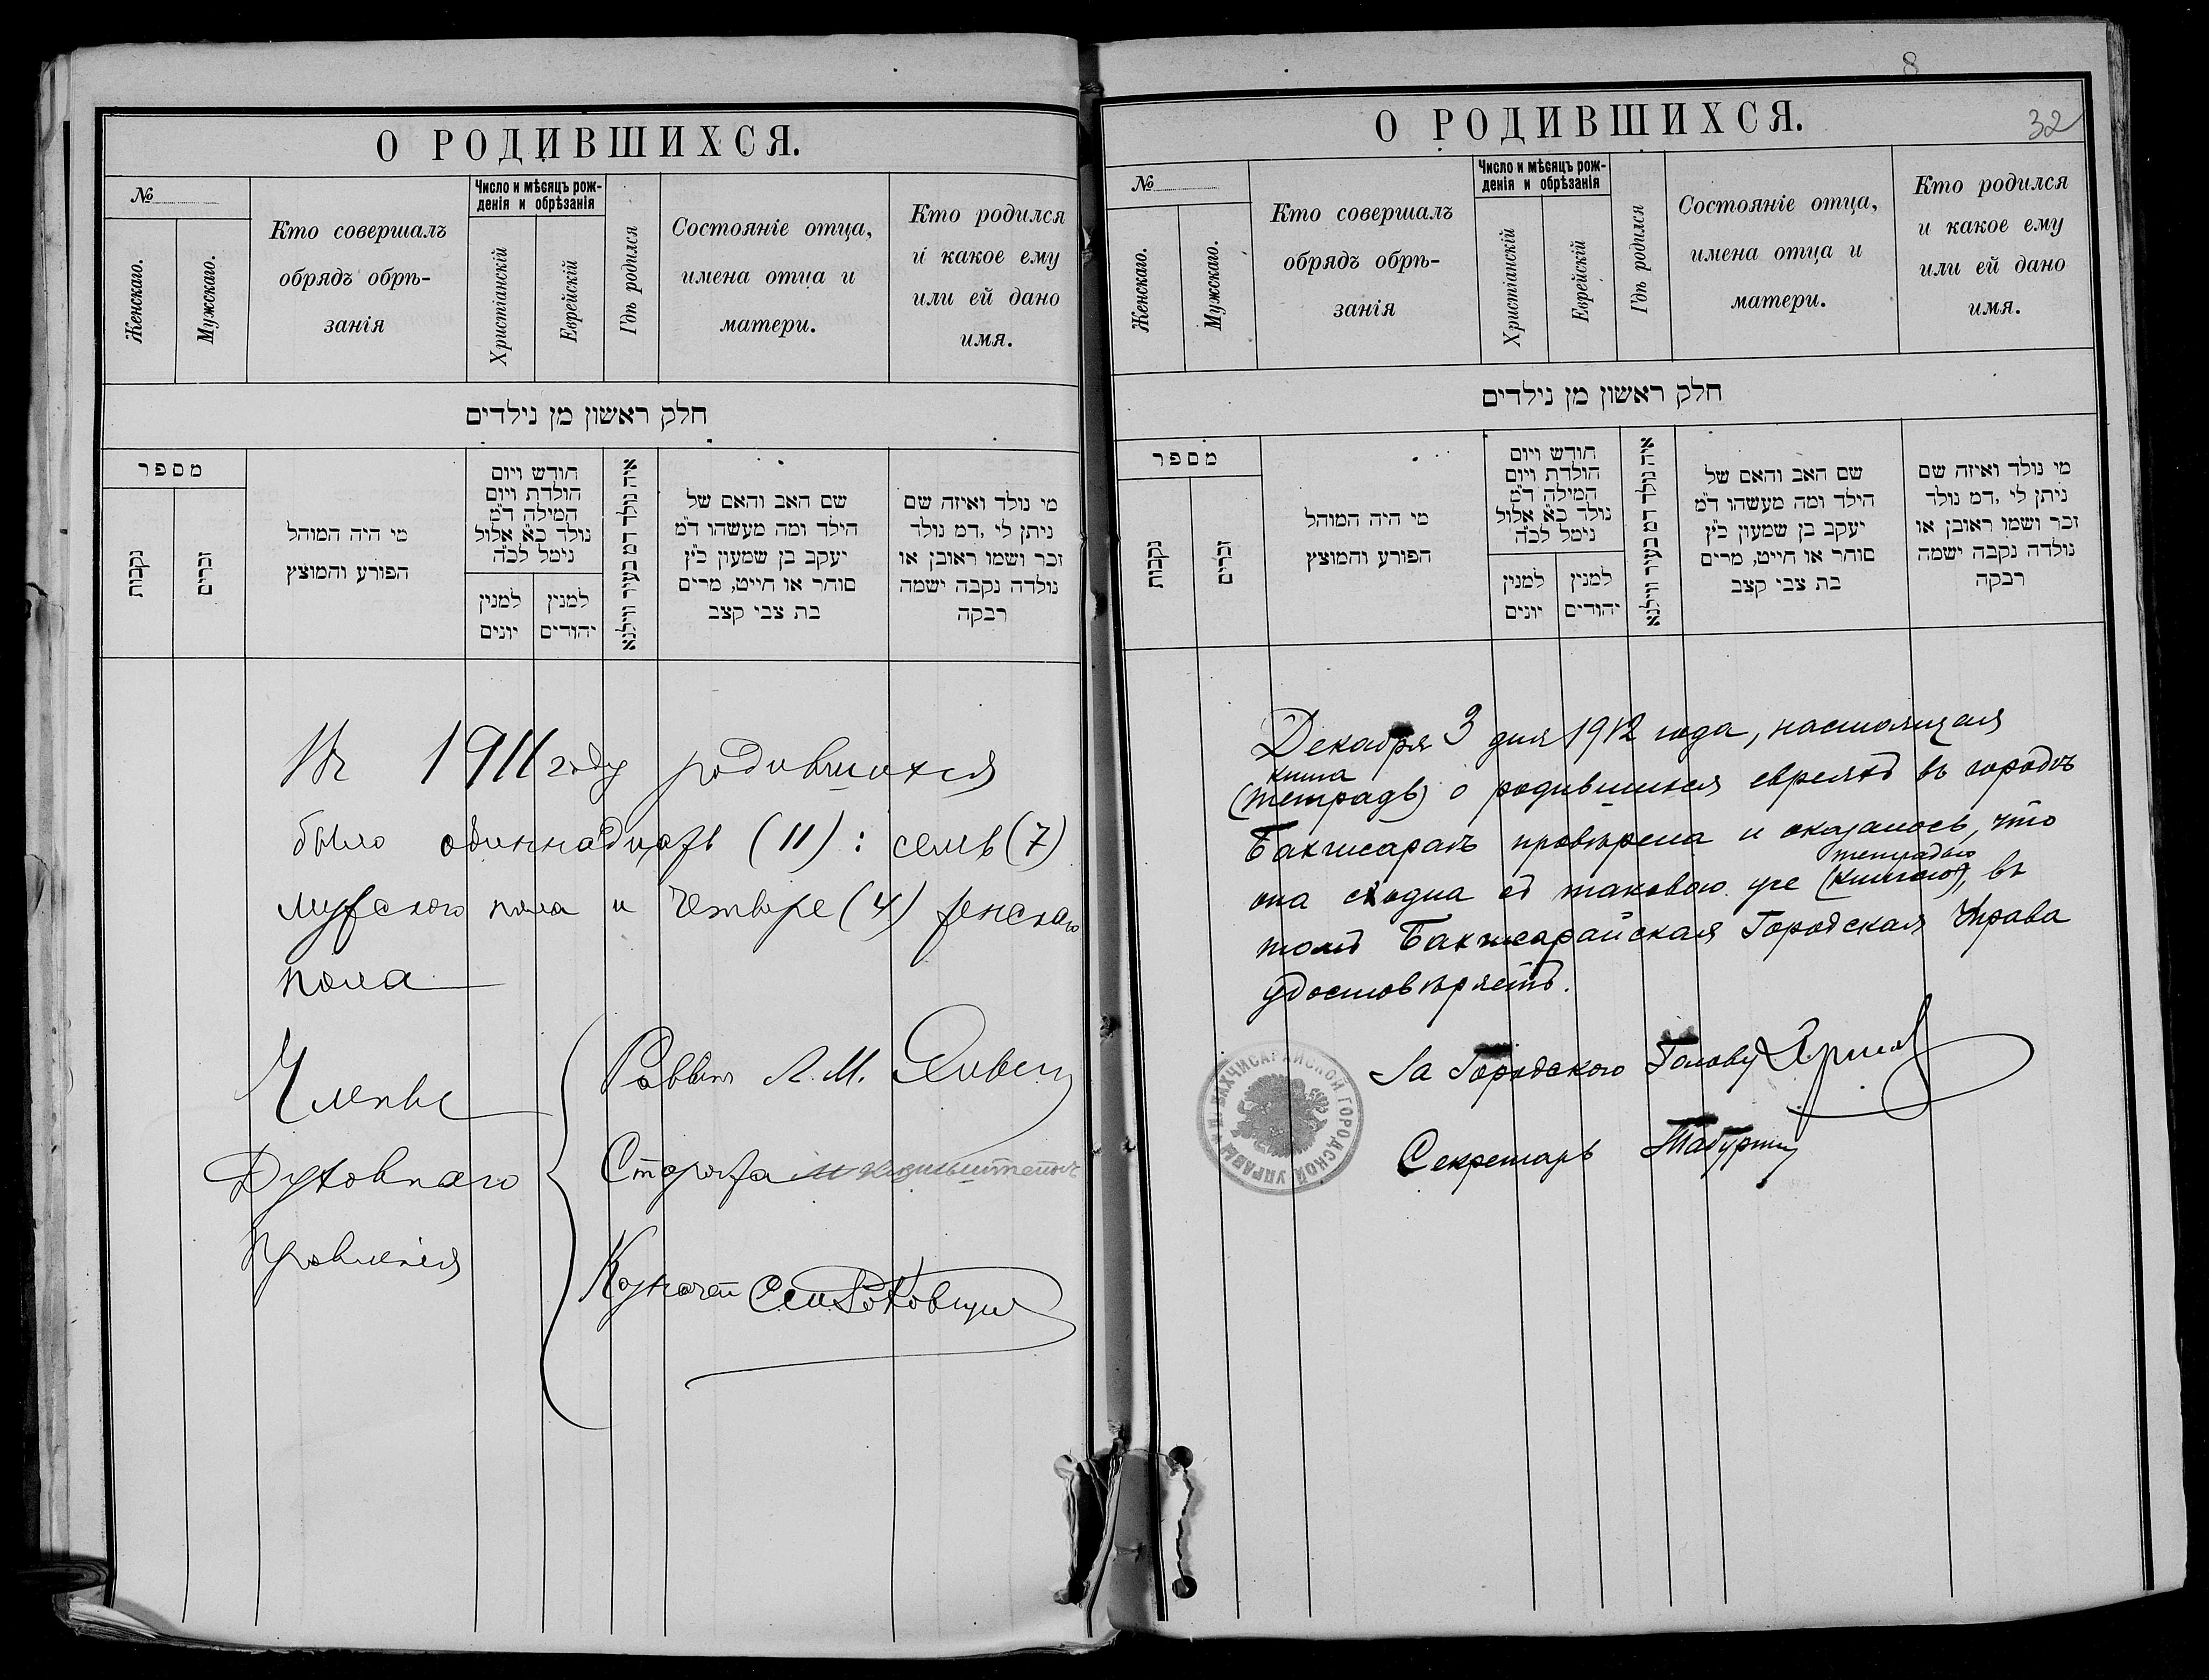 О РОДИВШИХСЯ.
№
Женскаго.
Мужскаго.
Кто совершалъ
обрядъ обрѣ-
занія
Число и мѣсяцъ рож-
денія и обрѣзанія
Христіанскій
Еврейскій
Гдѣ родился
Состояніе отца,
имена отца и
матери.
Кто родился
и какое ему
или ей дано
имя.
חלק ראשון מן נילדים
מספר
נקבות
זכרים
מי היה המוהל
הפורע והמוצץ
חודש ויום
הולדת ויום
המילה ד"מ
נולד כ"א אלול
נימל לכ"ה
למנין
יונים
למנין
יהודים
איה נולד דמ בעיר ווילנא
שם האב והאם של
הילד ומה מעשהו ד"מ
יעקב בן שמעון כ"ץ
סוחר או חייט, מרים
בת צבי קצב
מי נולד ואיזה שם
ניתן לי ,דמ נולד
זכר ושמו ראובן או
נולדה נקבה ישמה
רבקה
Въ 1911 году родившихся
было одиннадцать (11): семь (7)
мужского пола и четыре (4) женскаго
пола
Члены
Духовнаго
Правленія
Раввинъ Л. М.
Староста
Казначей
8
32
О РОДИВШИХСЯ.
№
Женскаго.
Мужскаго.
Кто совершалъ
обрядъ обрѣ-
занія
Число и мѣсяцъ рож-
денія и обрѣзанія
Христіанскій
Еврейскій
Гдѣ родился
Состояніе отца,
имена отца и
матери.
Кто родился
и какое ему
или ей дано
имя.
חלק ראשון מן נילדים
מספר
נקבות
זכרים
מי היה המוהל
הפורע והמוצץ
חודש ויום
הולדת ויום
המילה ד"מ
נולד כ"א אלול
נימל לכ"ה
למנין
יונים
למנין
יהודים
איה נולד דמ בעיר ווילנא
שם האב והאם של
הילד ומה מעשהו ד"מ
יעקב בן שמעון כ"ץ
סוחר או חייט, מרים
בת צבי קצב
מי נולד ואיזה שם
ניתן לי ,דמ נולד
זכר ושמו ראובן או
נולדה נקבה ישמה
רבקה
Декабря 3 дня 1912 года, настоящая
книга
(тетрадь) о родившихся евреяхъ въ городѣ
Бахчисараѣ провѣрена и оказалось, что
тетрадью
она сходна съ таковою же (книгою), въ
томъ Бахчисарайская Городская Управа
удостовѣряетъ.
За Городского Голову
Секретарь
БАХЧИСАРАЙСКОЙ ГОРОДСКОЙ УПРАВЫ